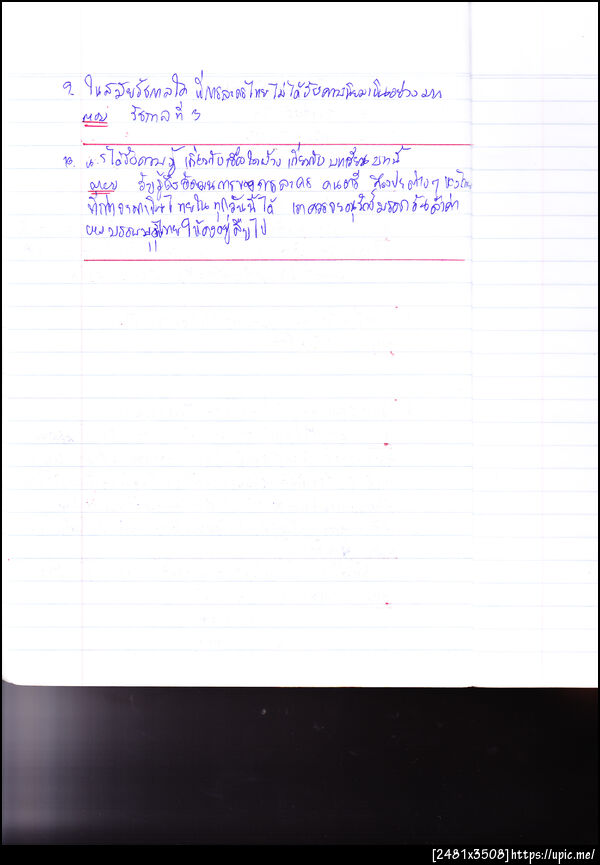 9. ในสมัยรัชกาลใด ที่การละครไทยไม่ได้รับความนิยมเป็นอย่างมาก
ตอบ รัชกาลที่ 3
10. น.ร ได้รับความรู้ เกี่ยวกับเรื่องใดบ้าง เกี่ยวกับ บทเรียน บทนี้
ตอบ รับรู้ถึงวิวัฒนาการของการละคร ดนตรี ศิลปะต่างๆ ของไทย
ที่กว่าจะมาเป็นไทยใน ทุกวันนี้ได้ เราควรจะอนุรักษ์มรดกอันล้ำค่า
ของบรรพบุรุษไทยให้คงอยู่สืบไป
[2481x3508]https://upic.me/